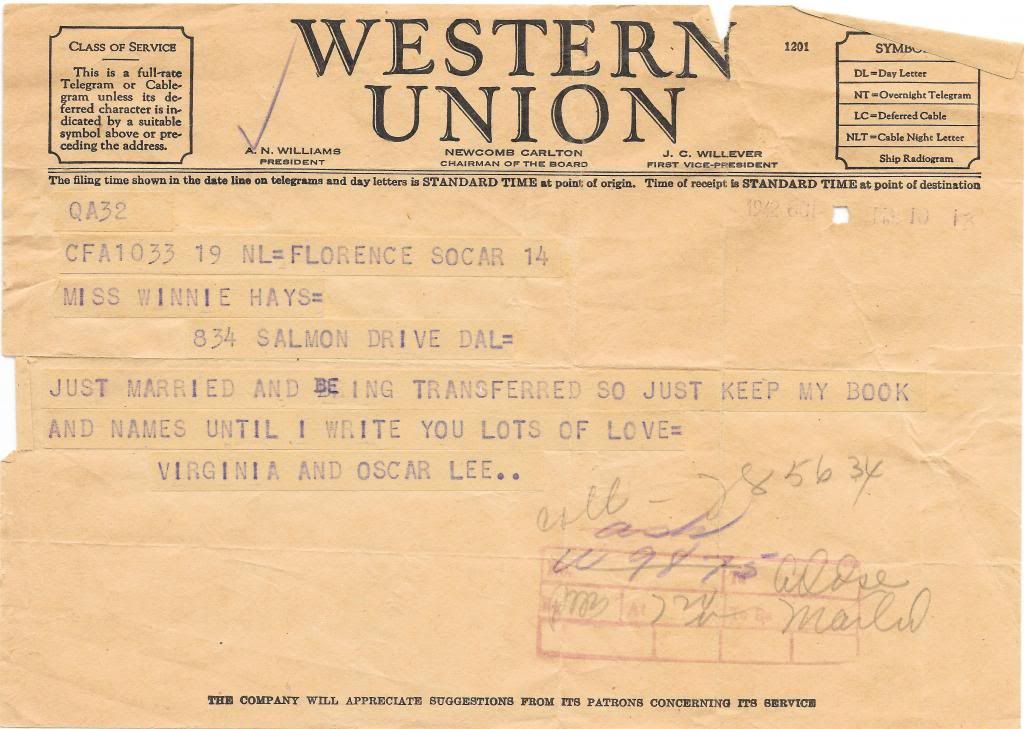 CLASS OF SERVICE
This is a full-rate
Telegram or Cable-
gram unless its de-
ferred character is in-
dicated by a suitable
symbol above or pre-
ceding the address.
WESTERN
UNION
1201
A. N. WILLIAMS
PRESIDENT
NEWCOMB CARLTON
CHAIRMAN OF THE BOARD
J. C. WILLEVER
FIRST VICE-PRESIDENT
DL=Day Letter
NT=Overnight Telegram
LC=Deferred Cable
NLT=Cable Night Letter
Ship Radiogram
The filing time shown in the date line on telegrams and day letters is STANDARD TIME at point of origin. Time of receipt is STANDARD TIME at point of destination
QA32
1942
CFA1033 19 NL=FLORENCE SOCAR 14
MISS WINNIE HAYS=
834 SALMON DRIVE DAL=
JUST MARRIED AND BEING TRANSFERRED SO JUST KEEP MY BOOK
AND NAMES UNTIL I WRITE YOU LOTS OF LOVE=
VIRGINIA AND OSCAR LEE..
5634
ask
W 9875
THE COMPANY WILL APPRECIATE SUGGESTIONS FROM ITS PATRONS CONCERNING ITS SERVICE